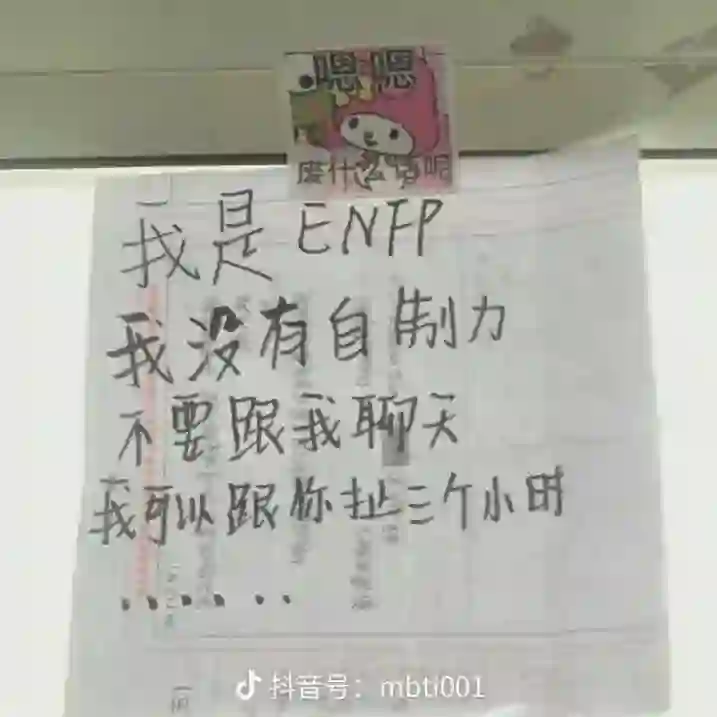 嗯嗯
我是ENFP
我没有自制力
不要跟我聊天
我可以跟你扯三个小时
......
抖音号：mbti001